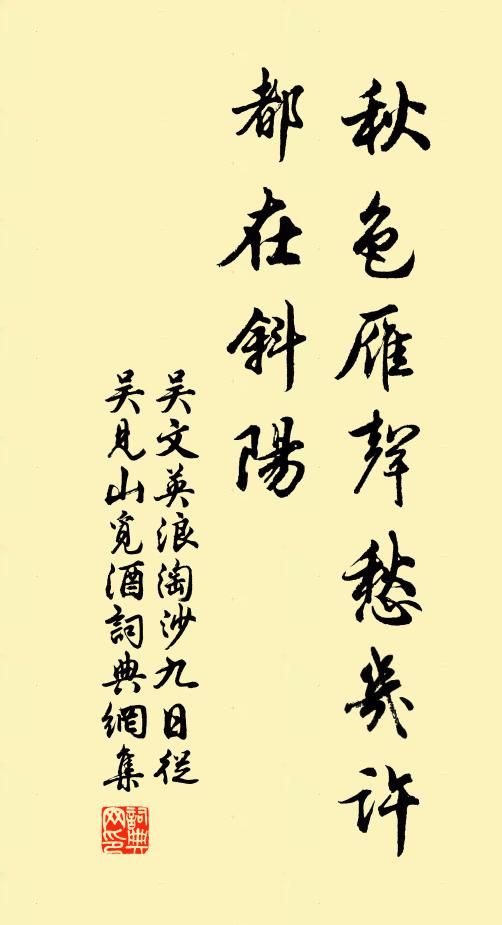 秋色雁聲愁幾許
都在斜陽
吴文英浪淘沙九日從
吴見山覓酒詞典網集
詞典网印